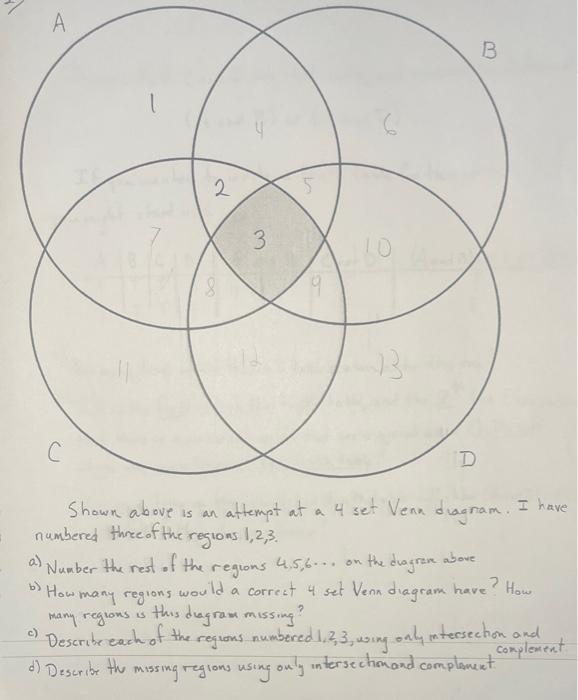 A
B
1
4
6
2
5
7
3
10
8
9
11
12
13
C
D
Shown above is an attempt at a 4 set Venn diagram. I have
numbered three of the regions 1,2,3.
a) Number the rest of the regions 4,5,6... on the diagram above
b) How many regions would a correct 4 set Venn diagram have? How
many regions is this diagram missing?
c) Describe each of the regions numbered 1,2,3, using only intersection and
complement.
d) Describe the missing regions using only intersection and complement